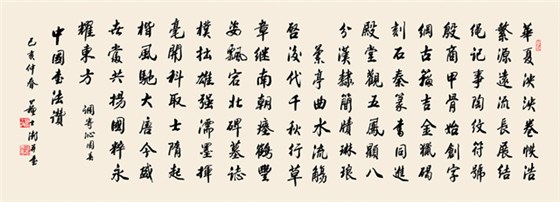 華夏泱泱卷帙浩
繁源遠流長展結
绳記事陶紋符號
殷商甲骨始創字
綱古籀吉金獵碣
刻石秦篆書同進
殿堂觀五鳳顯八
分漢隸簡牘琳琅
蘭亭曲水流觴
啓後代千秋行草
章继南朝瘞鶴豐
姿飄宕北碑墓誌
樸拙雄强濡墨揮
毫開科取士隋起
楷風馳大唐今盛
世當共揚國粹永
耀東方 調寄沁園春
中國書法讚
己亥仲春 蘇士澍并書